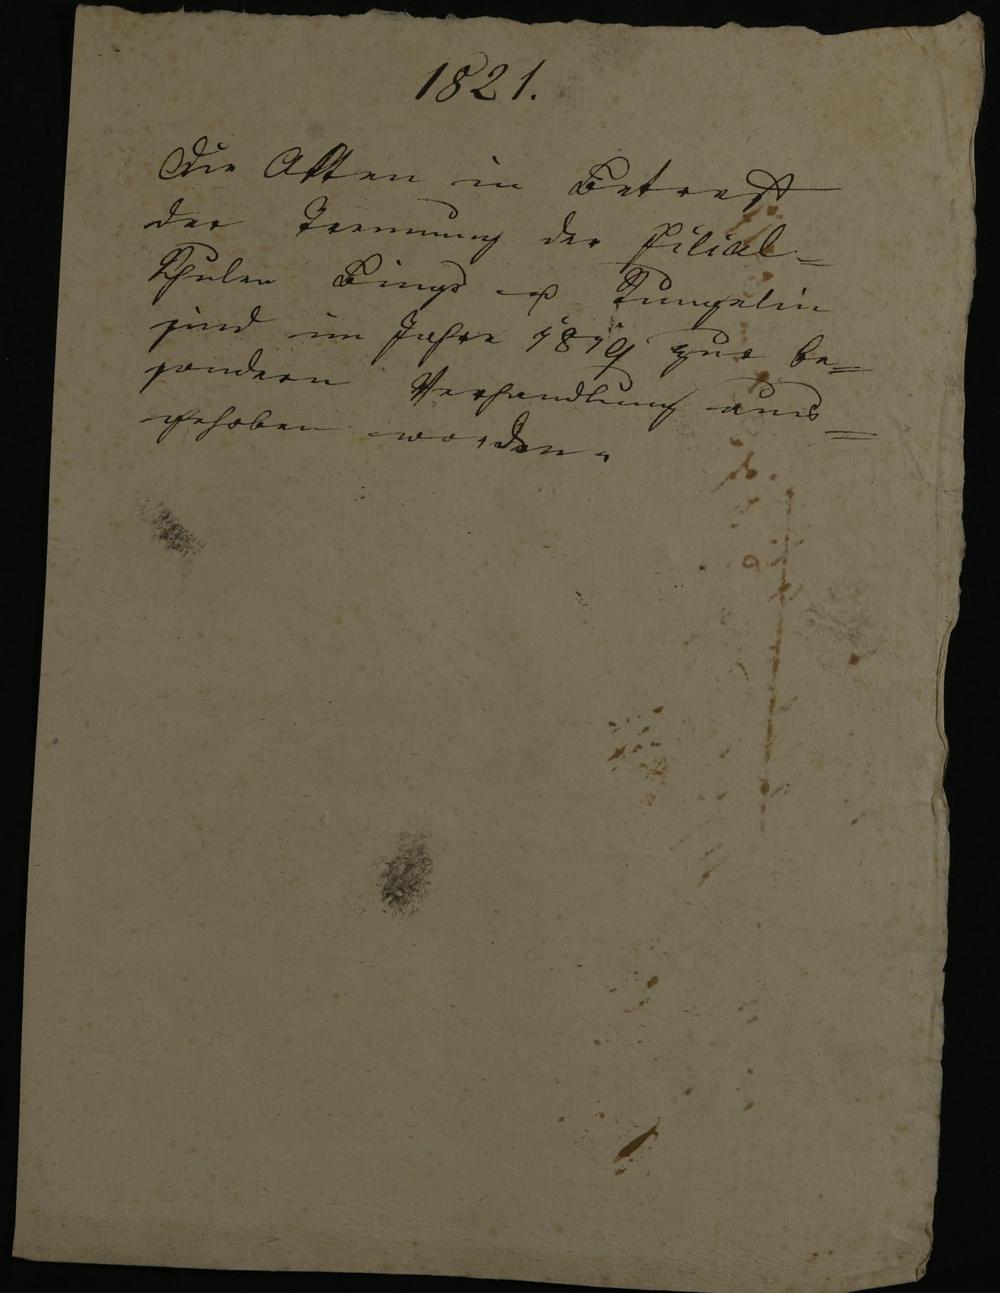 1821.
Die Akten in Betreff
der Trennung der Filial=
Schulen Bings u Tungelin
sind im Jahre 1819 zur be=
sondern Verhandlung aus=
gehoben worden.